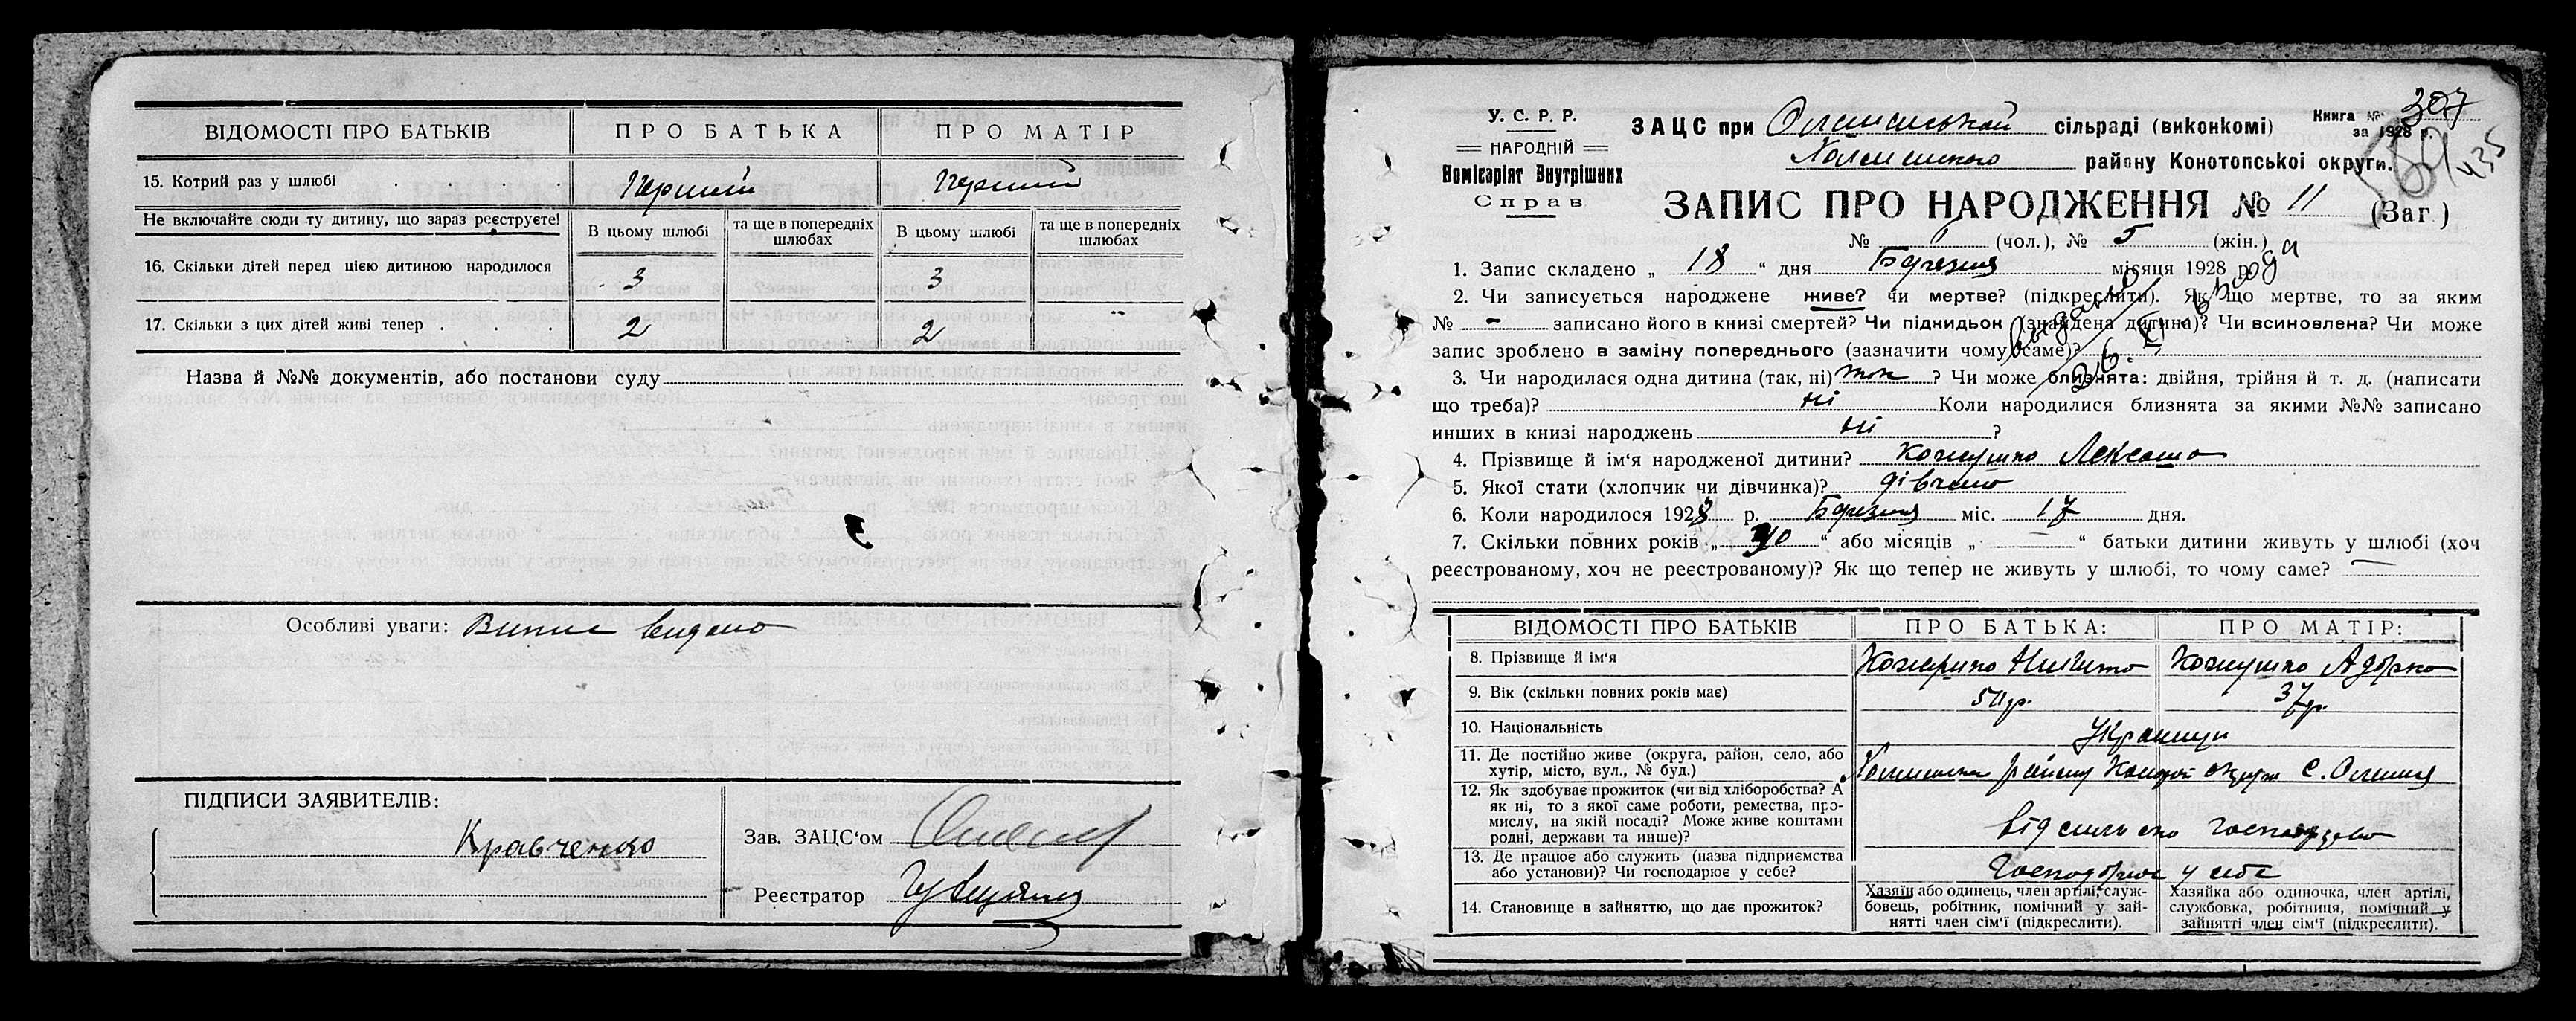 ВІДОМОСТІ ПРО БАТЬКІВ ПРО БАТЬКА ПРО МАТІР
15. Котрий раз у шлюбі Перший Перший
Не включайте сюди ту дитину, що зараз реєструєте! В цьому шлюбі та ще в попередніх шлюбах В цьому шлюбі та ще в попередніх шлюбах
16. Скільки дітей перед цією дитиною народилося 3 3
17. Скільки з цих дітей живі тепер 2 2
Назва й №№ документів, або постанови суду
Особливі уваги: Випис видано
ПІДПИСИ ЗАЯВИТЕЛІВ:
Кравченко
Зав. ЗАЦС‘ом
Реєстратор
У. С. Р. Р.
НАРОДНІЙ
Комісаріят Внутрішних
Справ
ЗАЦС при сільраді (виконкомі)
Книга № 307
за 1928 р.
435
району Конотопської округи.
ЗАПИС ПРО НАРОДЖЕННЯ № 11 (Заг.)
№ (чол.), № 5 (жін.)
1. Запис складено „ 18 “ дня Березня місяця 1928 р.
2. Чи записується народжене живе? чи мертве? (підкреслити). Як що мертве, то за яким
№ - записано його в книзі смертей? Чи підкидьок (знайдена дитина)? Чи всиновлена? Чи може
запис зроблено в заміну попереднього (зазначити чому саме)?
3. Чи народилася одна дитина (так, ні) так ? Чи може близнята: двійня, трійня й т. д. (написати
що треба)? ні Коли народилися близнята за якими №№ записано
инших в книзі народжень ні ?
4. Прізвище й ім‘я народженої дитини? Кожушко
5. Якої стати (хлопчик чи дівчинка)? дівчина
6. Коли народилося 1928 р. Березня міс. 17 дня.
7. Скільки повних років „ “ або місяців „ “ батьки дитини живуть у шлюбі (хоч
реєстрованому, хоч не реєстрованому)? Як що тепер не живуть у шлюбі, то чому саме?
ВІДОМОСТІ ПРО БАТЬКІВ ПРО БАТЬКА: ПРО МАТІР:
8. Прізвище й ім‘я Кожушко Микита Кожушко
9. Вік (скільки повних років має) 37 р.
10. Національність Українці
11. Де постійно живе (округа, район, село, або
хутір, місто, вул., № буд.)
12. Як здобуває прожиток (чи від хліборобства? А
як ні, то з якої саме роботи, ремества, про-
мислу, на якій посаді? Може живе коштами
родні, держави та инше)?
від сільсько господарства
13. Де працює або служить (назва підприємства
або установи)? Чи господарює у себе?
Господарює у себе
14. Становище в зайняттю, що дає прожиток?
Хазяїн або одинець, член артілі, служ-
бовець, робітник, помічний у зай-
нятті член сім‘ї (підкреслити).
Хазяйка або одиночка, член артілі,
службовка, робітниця, помічний у
зайнятті член сім‘ї (підкреслити).